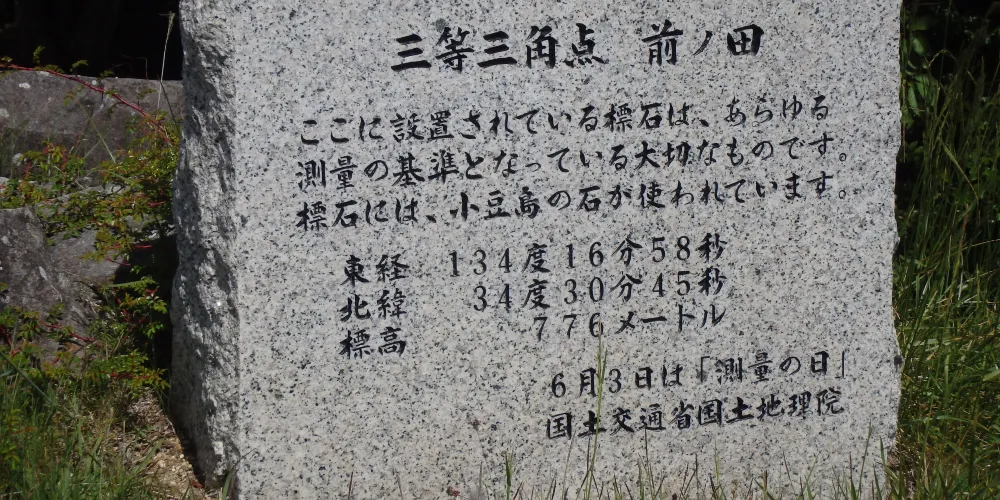 三等三角点 前ノ田
ここに設置されている標石は、あらゆる
測量の基準となっている大切なものです。
標石には、小豆島の石が使われています。
東経 134度16分58秒
北緯 34度30分45秒
標高 776メートル
6月3日は「測量の日」
国土交通省国土地理院